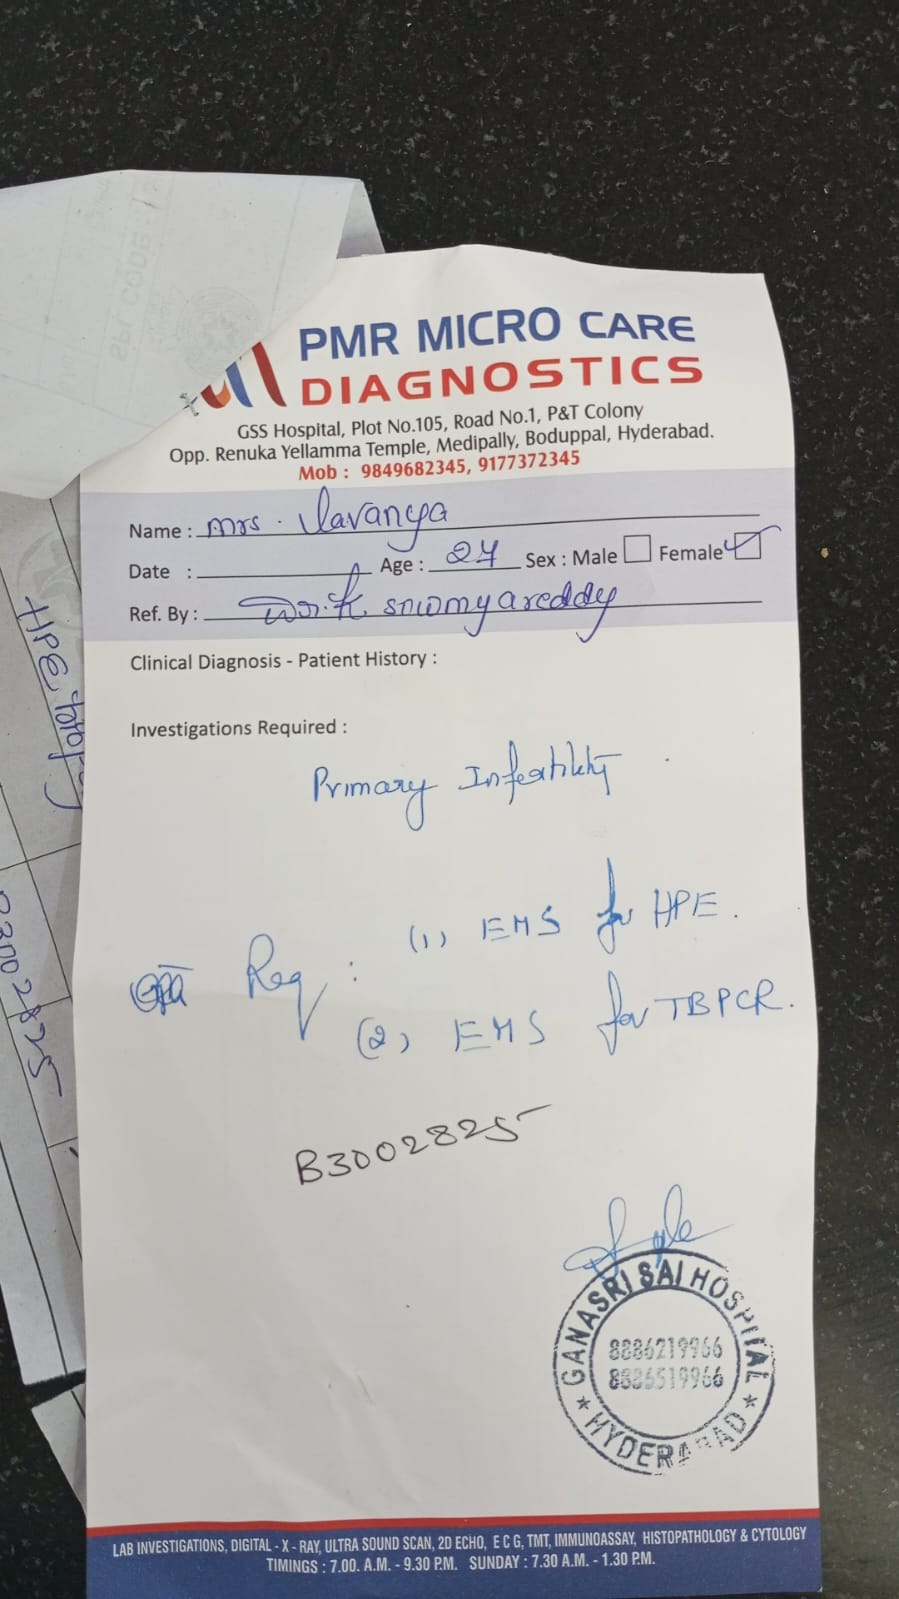 PMR MICRO CARE
DIAGNOSTICS
GSS Hospital, Plot No.105, Road No.1, P&T Colony
Opp. Renuka Yellamma Temple, Medipally, Boduppal, Hyderabad.
Mob : 9849682345, 9177372345
Name : mrs. lavanya
Date : Age : 27 Sex : Male Female
Ref. By : Dr. K sowmyareddy
Clinical Diagnosis - Patient History :
Investigations Required :
Primary Infertility
Req : (1) EMS for HPE.
(2) EMS for TBPCR.
B3002825
GANASRI SAI HOSPITAL
8886219966
8886519966
* HYDERABAD *
LAB INVESTIGATIONS, DIGITAL - X - RAY, ULTRA SOUND SCAN, 2D ECHO, E C G, TMT, IMMUNOASSAY, HISTOPATHOLOGY & CYTOLOGY
TIMINGS : 7.00. A.M. - 9.30 P.M. SUNDAY : 7.30 A.M. - 1.30 P.M.
SPL CODE
HPE
3002825